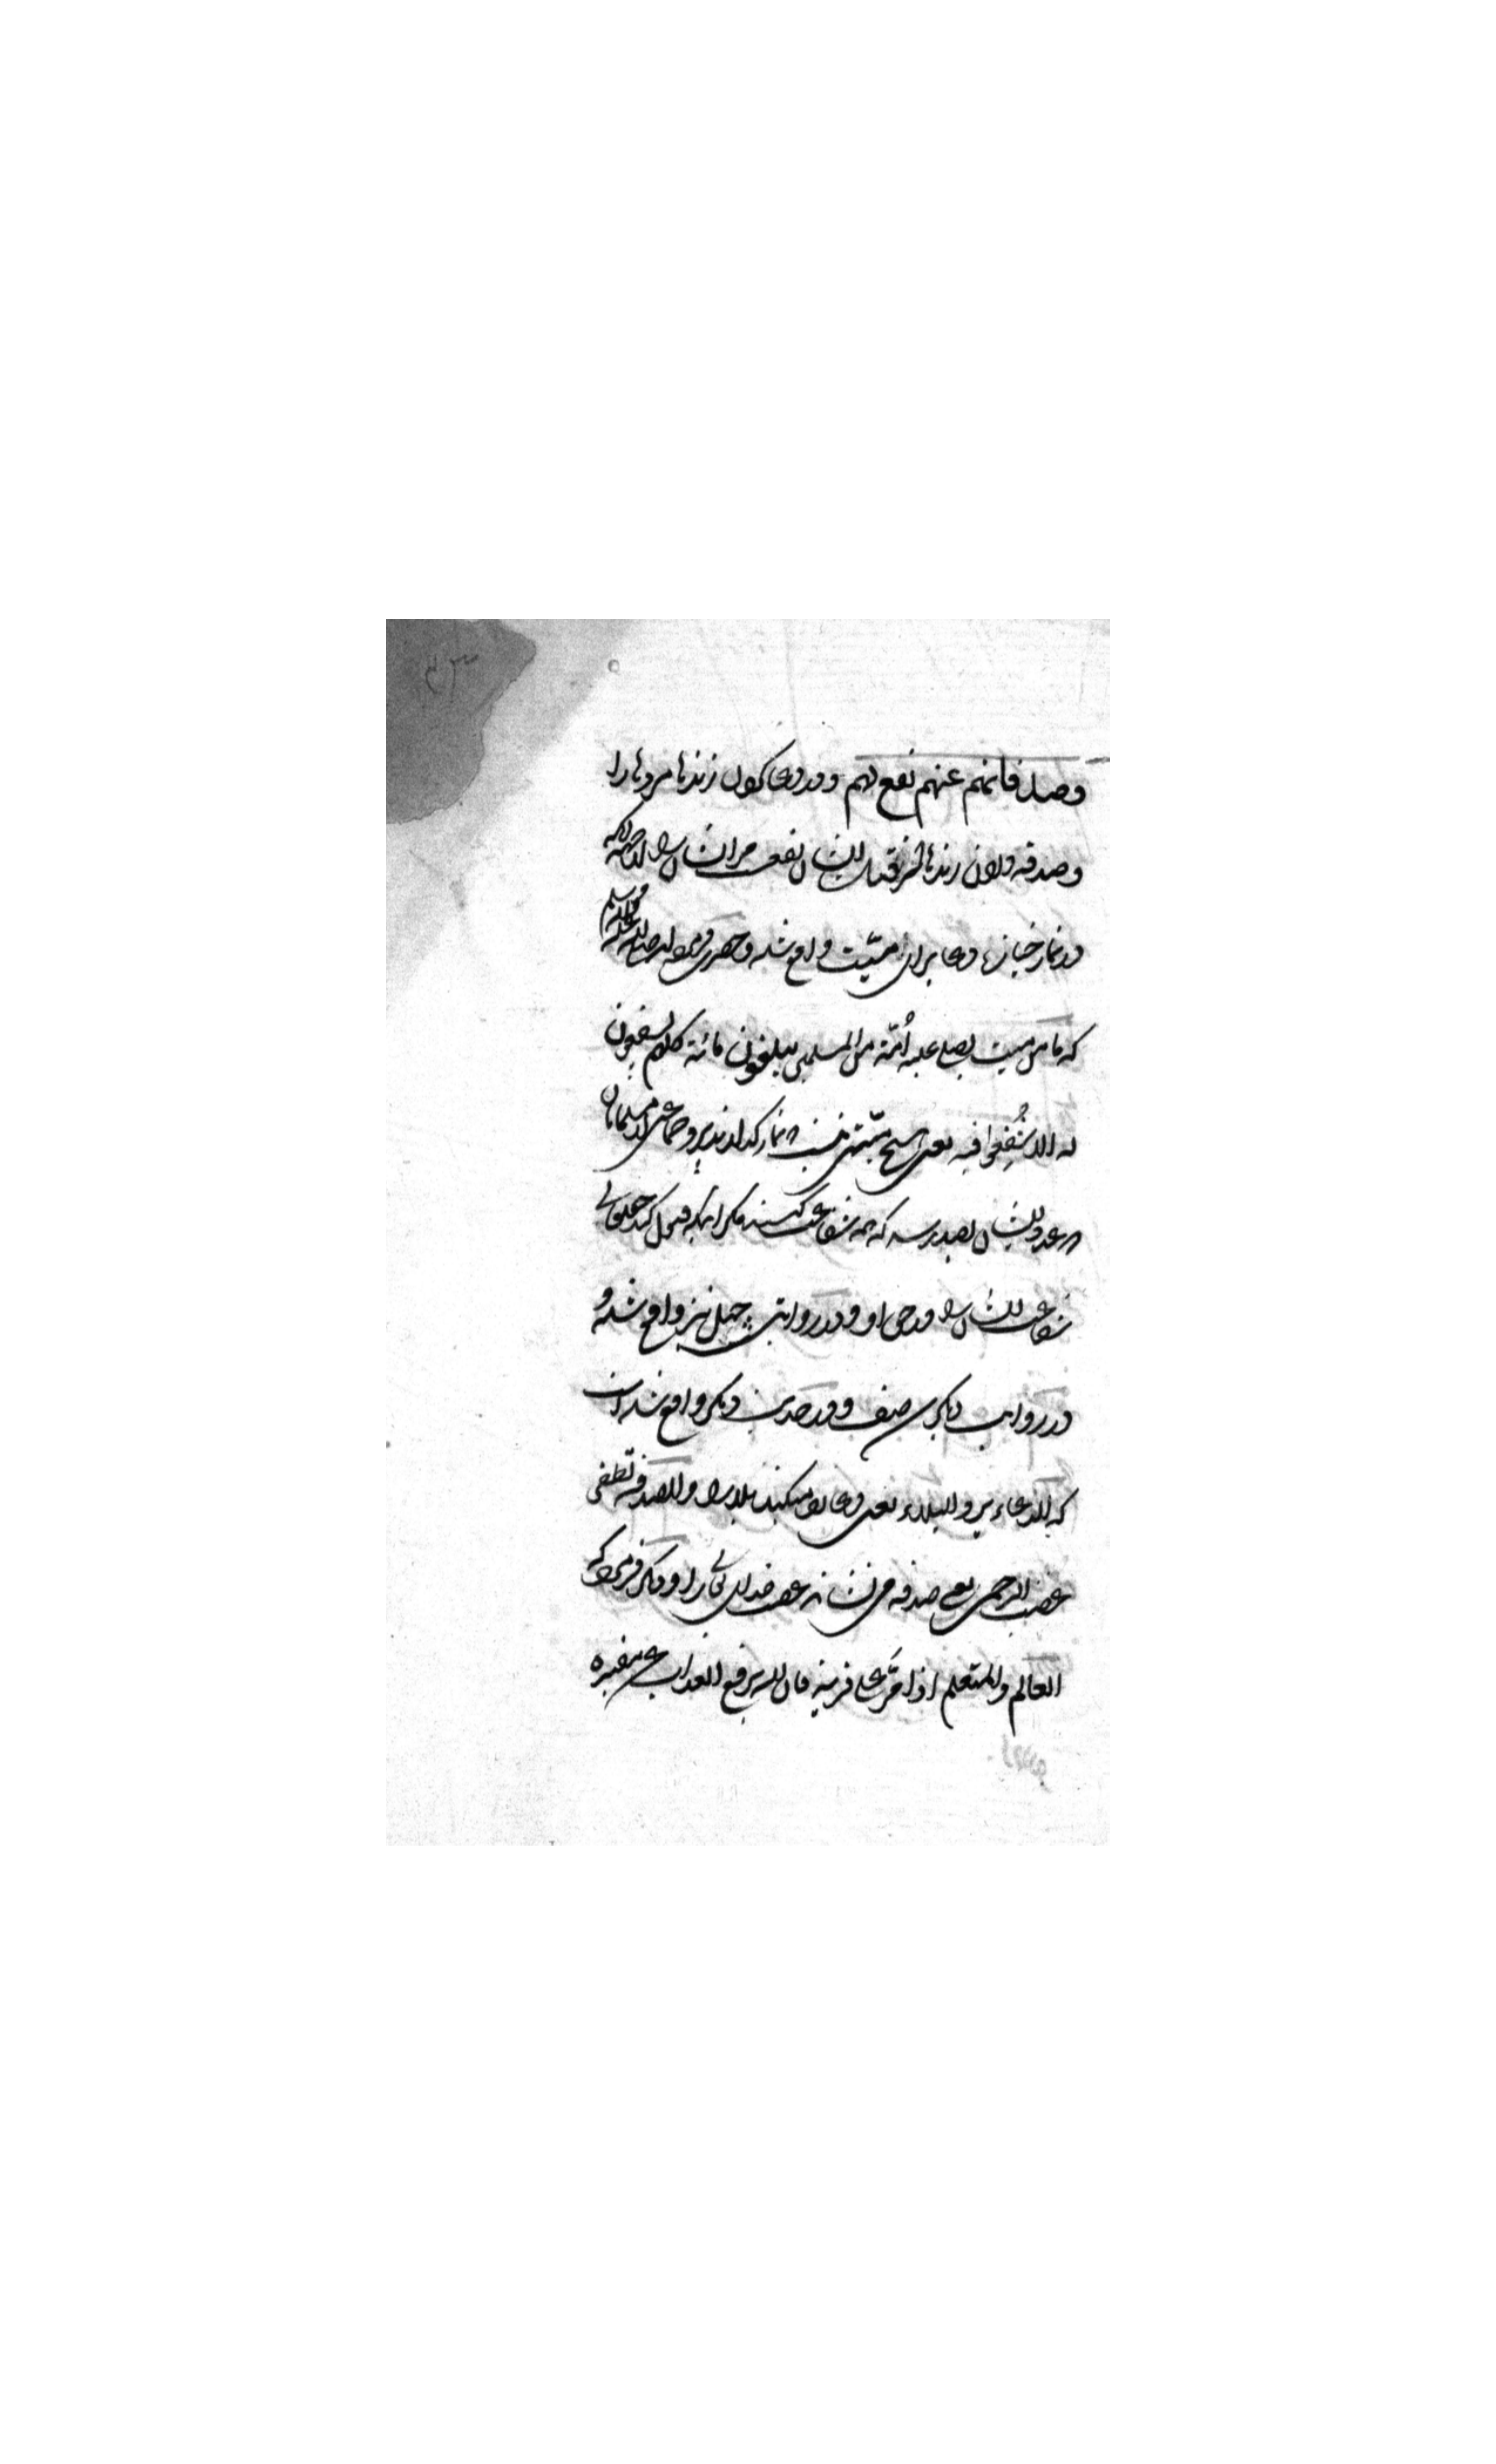 وصدقاتهم عنهم نفع لهم ودر دعا کردن زندها مردها را
وصدقه دادن زندها از قبل ایشان نفعست مر ایشان را از آنجهة که
در نماز جنازها دعا برای میّت واقع شده و حضرت فرموده صلی الله علیه وآله وسلم
که ما من میت یصلی علیه اُمّة من المسلمین یبلغون مائة کلهم یشفعون
له الا شُفِعوا فیه یعنی هیچ میّتی نیست که نماز گذارند برو جماعتی از مسلمانان
که عدد ایشان بصد برسد که همه شفاعت کنند مگر آنکه قبول کند حق تعالی
شفاعت ایشان را در حق او ودر روایتی چهل نیز واقع شده و
در روایت دیگر سه صف ودر حدیث دیگر واقع شده است
که الدعاء یرد البلاء یعنی دعا رد میکند بلا را والصدقة تطفی
غضب الرحمن یعنی صدقه می نشاند غضب خدای تعالی را ودیگر فرموده که
العالم والمتعلم اذا مرّ علی قریة فان الله یرفع العذاب عن مقبرة